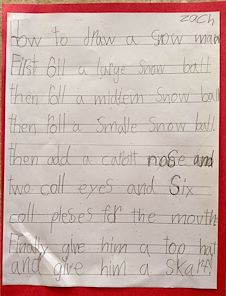 zach
How to draw a snow man
First Roll a large snow ball
then Roll a midiem snow ball
then Roll a Smalle snow ball.
then add a carott nose and
two coll eyes and Six
coll pleses for the mouth
Finally give him a top hat
and give him a skarf.